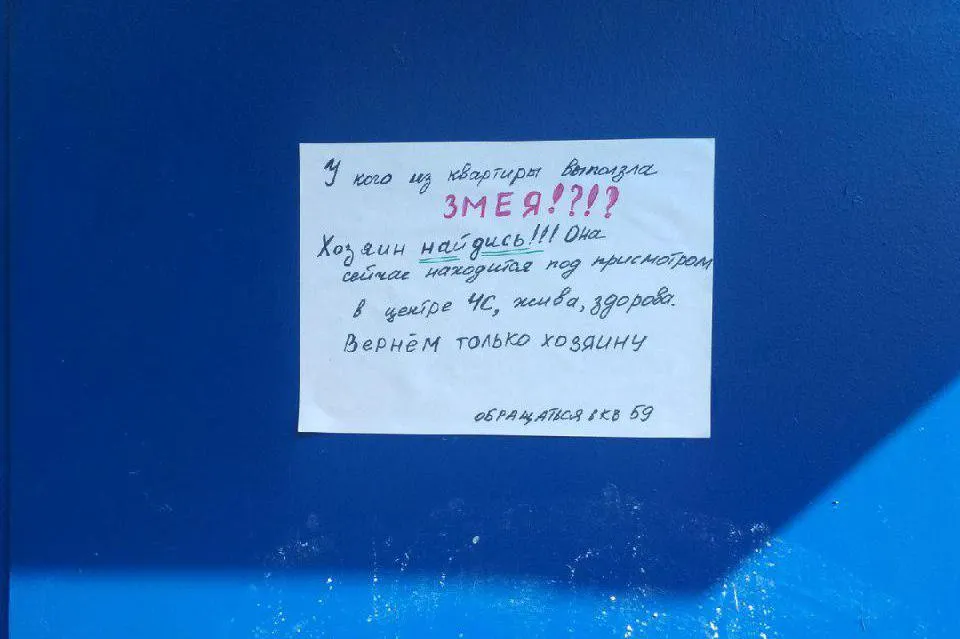 У кого из квартиры выползла
ЗМЕЯ!?!?
Хозяин найдись!!! Она
сейчас находится под присмотром
в центре ЧС, жива, здорова.
Вернём только хозяину
ОБРАЩАТЬСЯ В КВ 59